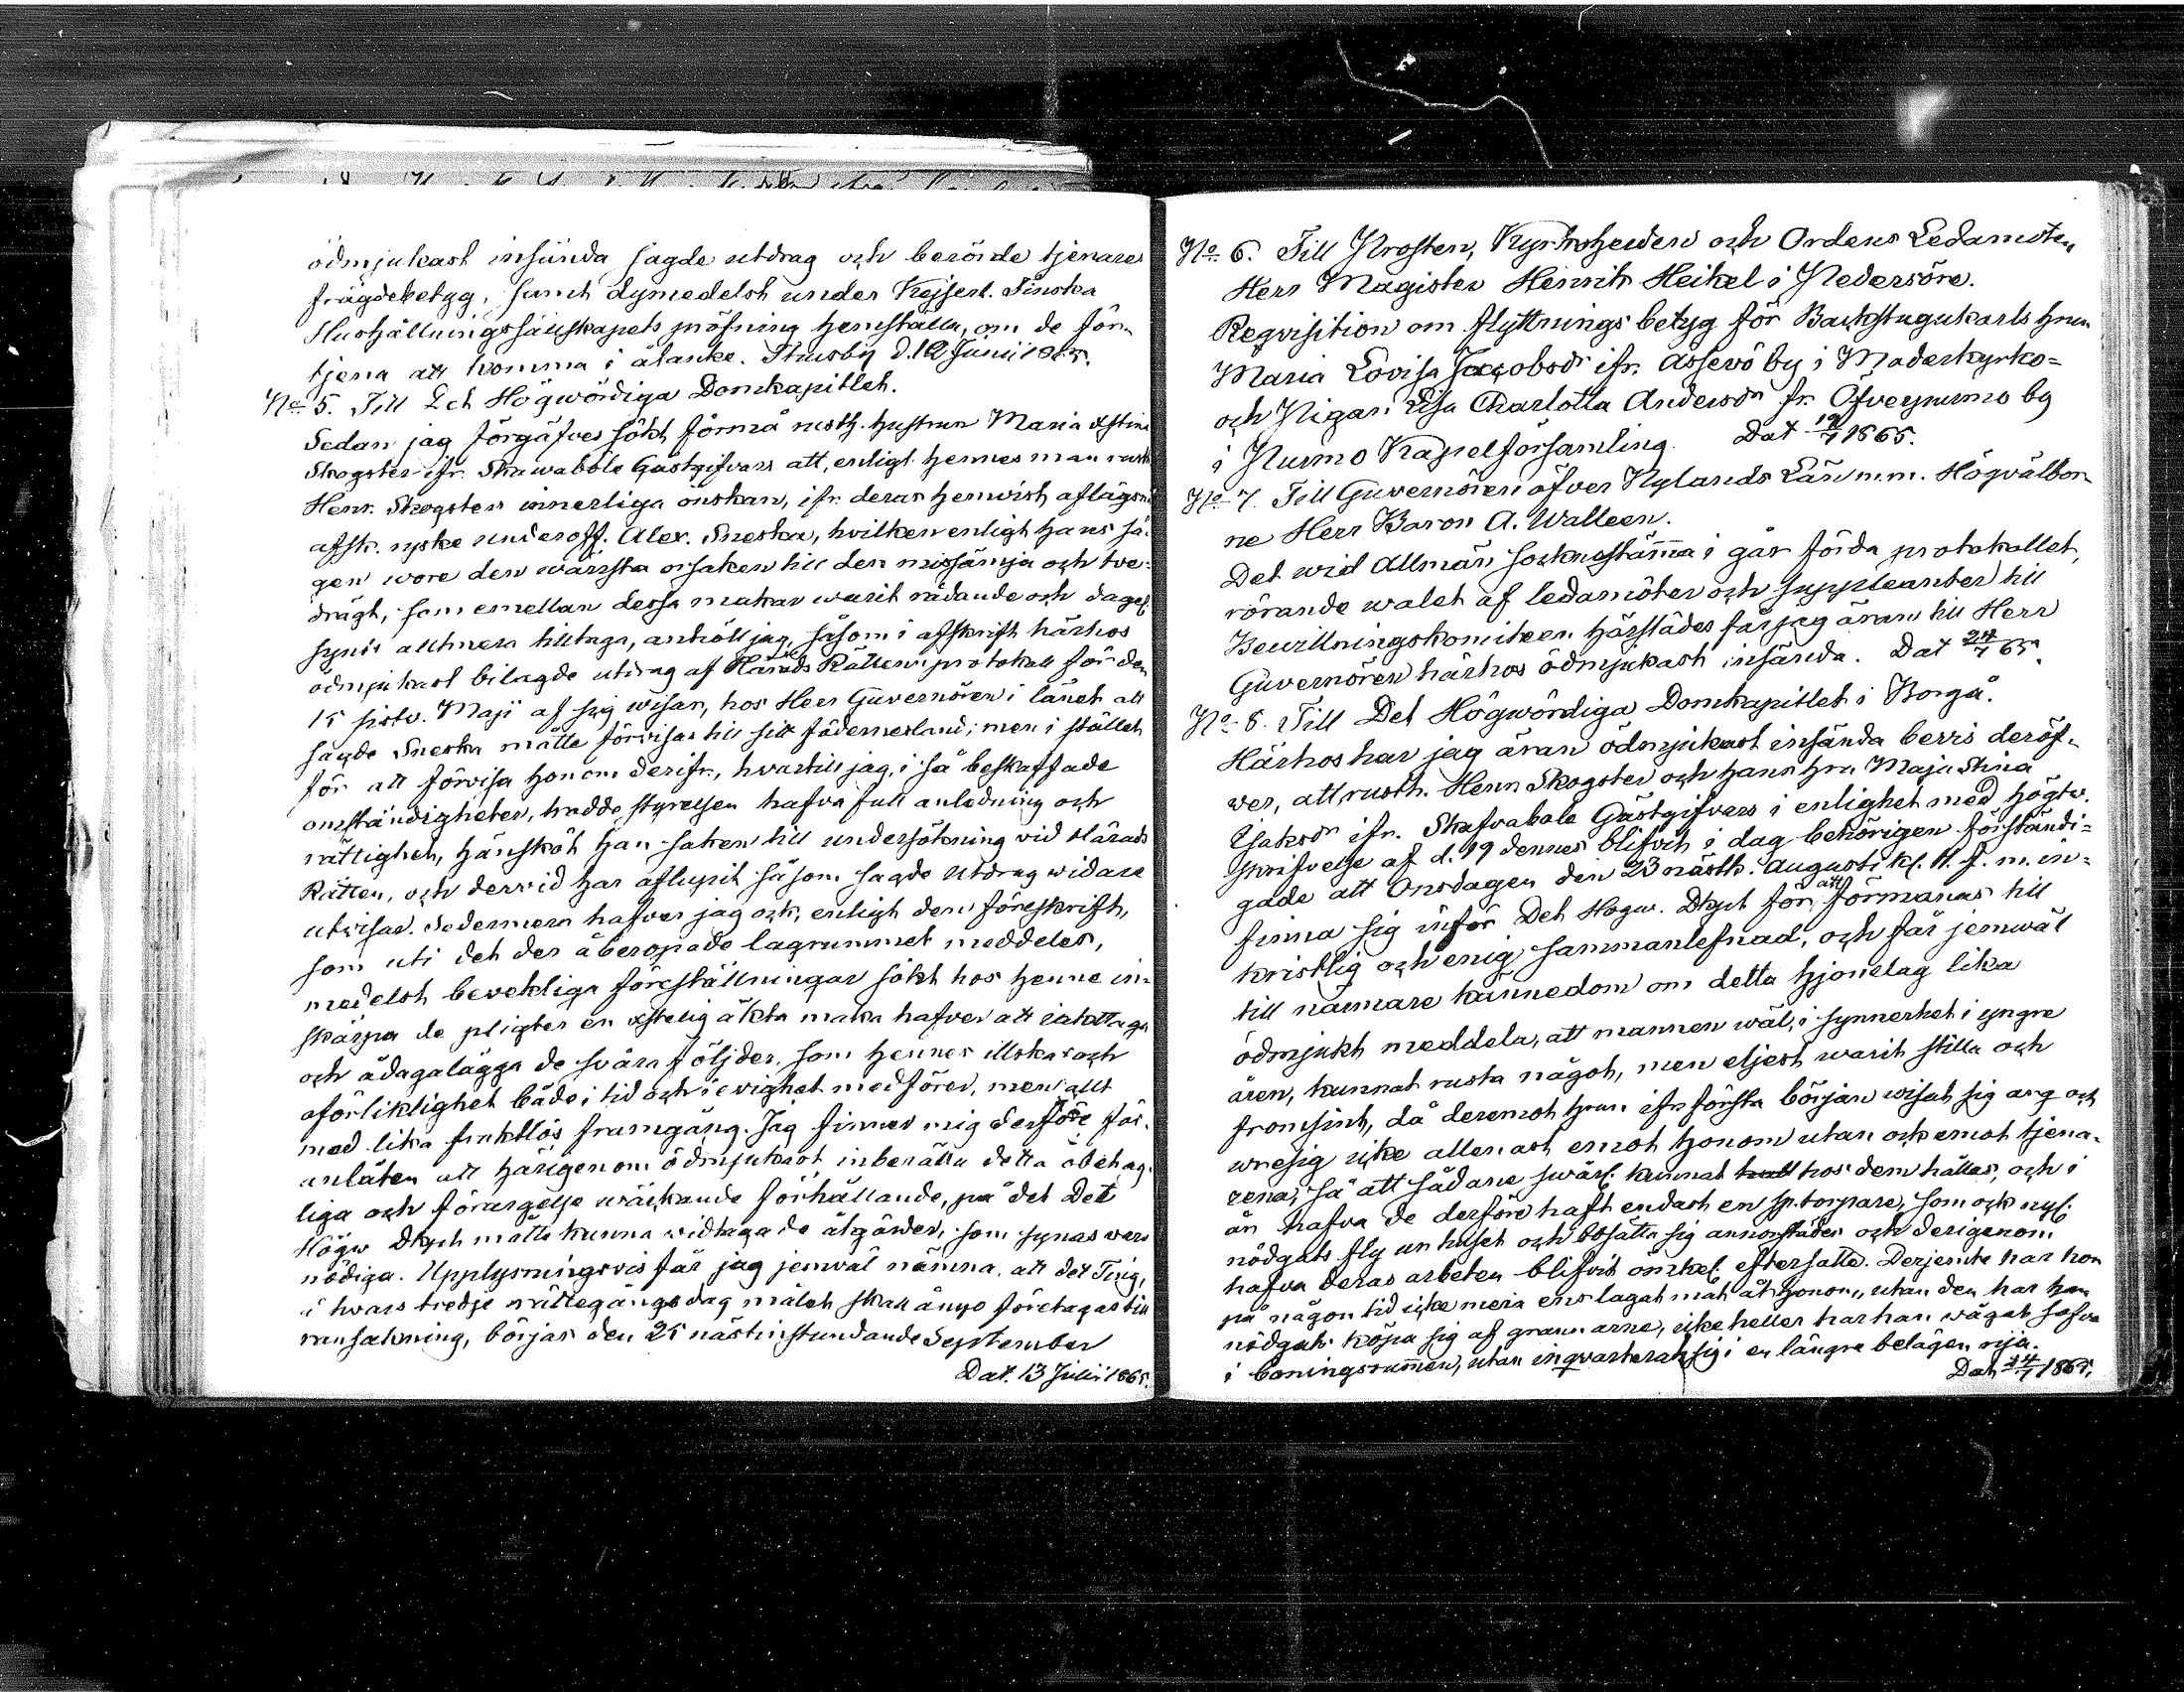 ödmjukast insända sagde utdrag och berörde tjenares
frägdebetyg, samt dymedelst under Kejserl. Finska
Hushållningssällskapets pröfning hemställa, om de för-
tjena att komma i åtanke. Thusby d. 12 Junii 1865.
No. 5. Till Det Högwördiga Domkapitlet.
Sedan jag förgäfves sökt förmå rusth. hustrun Maria Xstina
Skogster ifr. Skawaböle Gästgifvars att, enligt hennes man rusth.
Henr. Skogsters innerliga önskan, ifr. deras hemvist aflägsna
afsk. ryske underoff. Alex. Sneska, hvilken enligt hans sä-
gen wore den wärsta orsaken till den missämja och twe-
drägt, som emellan dessa makar warit rådande och dagel.
synes alltmera tilltaga, anhöll jag, såsom i afskrift härhos
ödmjukast bilagde utdrag af Härads Rättens protokoll för den
15 sistv. Maji af sig wisar, hos Herr Guvernören i länet att
sagde Sneska måtte förvisas till sitt fädernesland; men i stället
för att förvisa honom derifr., hvartill jag, i så beskaffade
omständigheter, trodde styrelsen hafva full anledning och
rättighet, hänsköt han saken till undersökning vid Härads
Rätten, och dervid har aflupit såsom sagde utdrag widare
utvisar. Sedermera hafver jag ock, enligt den föreskrift,
som uti det der åberopade lagrummet meddeles,
medelst bevekliga föreställningar sökt hos henne in-
skärpa de pligter en Xstelig äkta maka hafver att iakttaga
och ådagalägga de svåra följder, som hennes illska och
oförliklighet både i tid och i evighet medförer, men allt
med lika fruktlös framgång. Jag finner mig derföre för-
anlåten att härigenom ödmjukast inberätta detta obehag-
liga och förargelse wäckande förhållande, på det Det
Högw Dkplt måtte kunna widtaga de åtgärder, som synas vara
nödiga. Upplysningsvis får jag jemväl nämna, att det Ting,
å hvars tredje rättegångsdag målet skall ånyo företagas till
ransakning, börjas den 25 nästinstundande September
Dat. 13 Julii 1865.
No. 6. Till Prosten, Kyrkoherden och Ordens Ledamoten
Herr Magister Henrik Heikel i Pedersöre.
Reqvisition om flyttningsbetyg för Backstugukarls hrun
Maria Lovisa Jacobsdr ifr. Asserö by i Moderkyrko-
och Pigan Lisa Charlotta Andersdr fr. Öfverpurmo by
i Purmo Kapelförsamling. Dat 19/7 1865.
No. 7. Till Guvernören öfver Nylands Län m.m. Högvälbor-
ne Herr Baron A. Walleen.
Det wid Allmän socknestämma i går förda protokollet,
rörande walet af ledamöter och suppleanter till
Bewillningskomiteen härstädes får jag äran till Herr
Guvernören härhos ödmjukast insända. Dat 24/7 65.
No. 8. Till Det Högwördiga Domkapitlet i Borgå.
Härhos har jag äran ödmjukast insända bevis deröf-
wer, att rusth. Henr Skogster och hans hru Maja Stina
Isaksdr ifr. Skafvabole Gästgifvars i enlighet med högtv.
skrifvelse af d. 19 dennes blifvit i dag behörigen förständi-
gade att Onsdagen den 23 nästk. Augusti kl. 11 f. m. in-
finna sig inför Det Högw. Dkplt för att förmanas till
kristlig och enig sammanlefnad, och får jemwäl
till närmare kännedom om detta hjonelag lika
ödmjukt meddela, att mannen wäl, i synnerhet i yngre
åren, kunnat rusta något, men eljest warit stilla och
fromsint, då deremot hrun ifr första början wisat sig arg och
wresig icke allenast emot honom utan ock emot tjena-
rena, så att sådane swårl. kunnat hos dem hållas, och i
år hafva de derföre haft endast en sp. torpare, som ock nyl.
nödgats fly ur huset och bosätta sig annorstädes och derigenom
hafva deras arbeten blifvit ömkel. eftersatte. Derjemte har hon
på någon tid icke mera ens lagat mat åt honom, utan den har han
nödgats köpa sig af grannarne, icke heller har han wågat sofva
i boningsrummen, utan inqvarterat sig i en längre belägen rija.
Dat 24/7 1865.